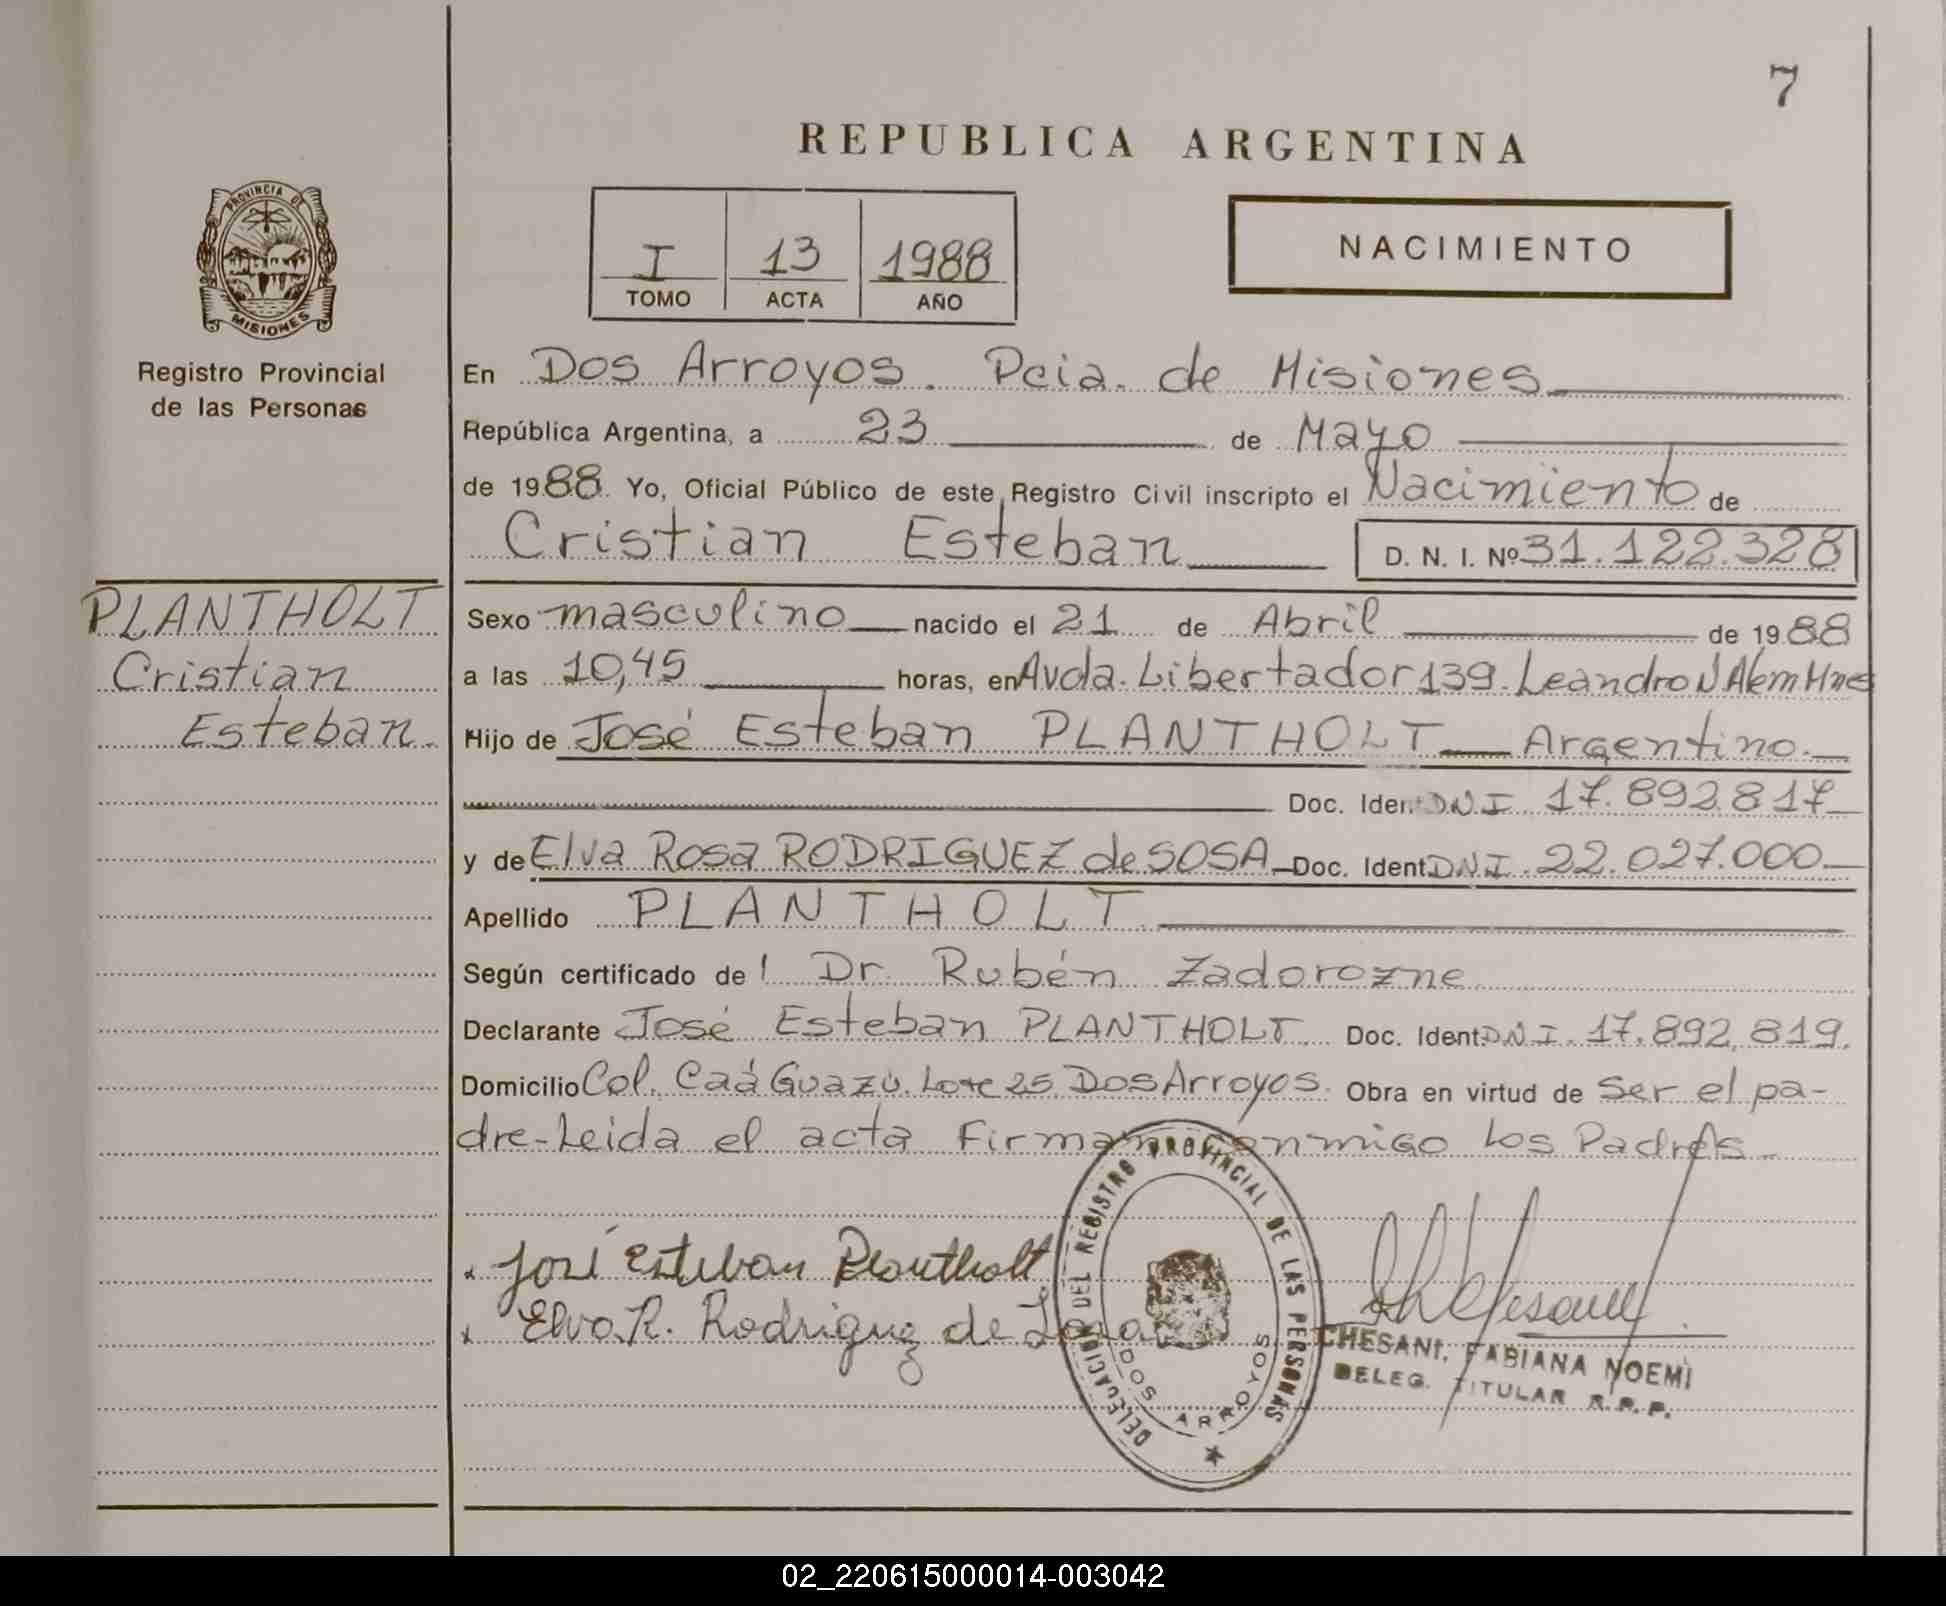 7
REPUBLICA ARGENTINA
PROVINCIA DE
MISIONES
Registro Provincial
de las Personas
I 13 1988
TOMO ACTA AÑO
NACIMIENTO
En Dos Arroyos. Pcia. de Misiones
República Argentina, a 23 de Mayo
de 1988. Yo, Oficial Público de este Registro Civil inscripto el Nacimiento de
Cristian Esteban D. N. I. Nº 31.122.328
PLANTHOLT
Cristian
Esteban.
Sexo masculino nacido el 21 de Abril de 1988
a las 10,45 horas, en Avda. Libertador 139. Leandro N Alem Mnes
Hijo de José Esteban PLANTHOLT Argentino.
Doc. Ident DNI 17.892.817
y de Elva Rosa RODRIGUEZ de SOSA Doc. Ident. DNI. 22.027.000
Apellido PLANTHOLT
Según certificado de l Dr. Rubén Zadorozne
Declarante José Esteban PLANTHOLT. Doc. Ident DNI. 17.892.819.
Domicilio Col. Caá Guazú. Lote 25. Dos Arroyos. Obra en virtud de ser el pa-
dre-Leida el acta Firman conmigo los Padres.
José Esteban Plantholt
Elva R. Rodriguez de Sosa
DELEGACION DEL REGISTRO PROVINCIAL DE LAS PERSONAS
DOS ARROYOS
CHESANI, FABIANA NOEMI
DELEG. TITULAR R.P.P.
02_220615000014-003042